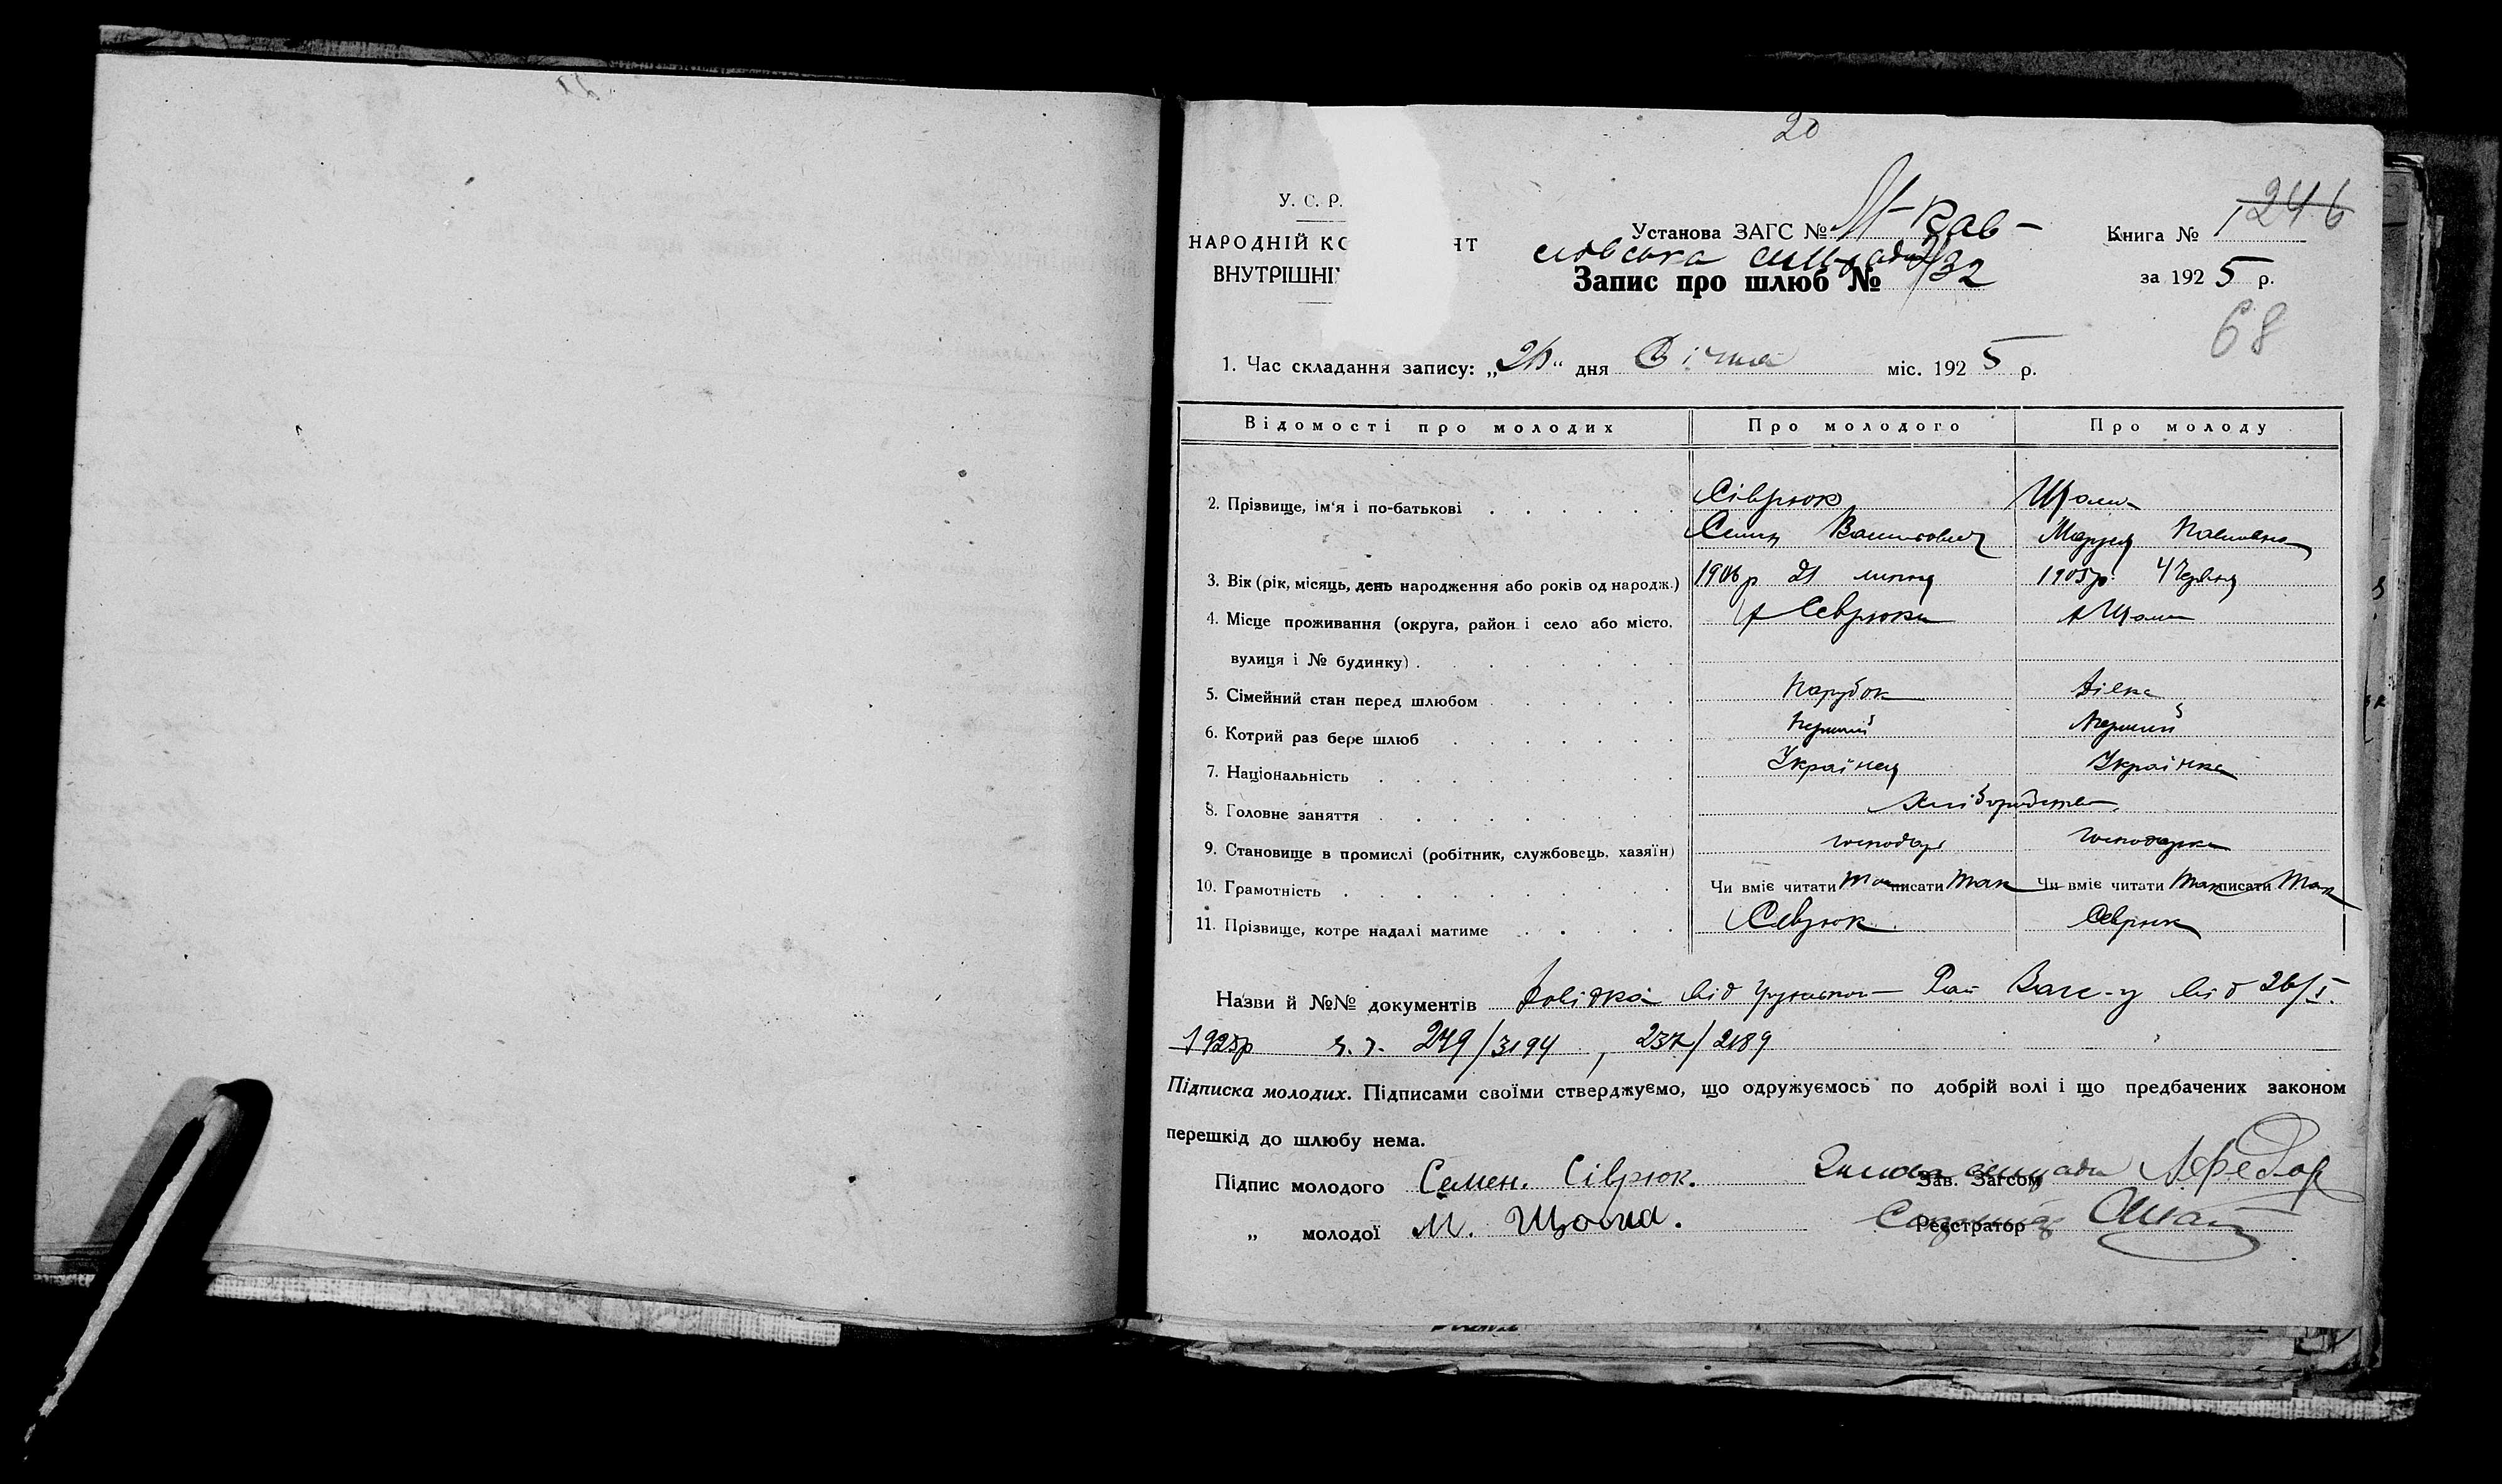 20
У. С. Р.
Установа ЗАГС №
Книга № 1 246
НАРОДНІЙ КО НТ
ВНУТРІШНІ
Запис про шлюб № 32
за 1925 р.
68
1. Час складання запису: „ “ дня Січня міс. 1925 р.
Відомості про молодих Про молодого Про молоду
2. Прізвище, ім'я і по-батькові Сіврюк Щома
Семен Маруся Павловна
3. Вік (рік, місяць, день народження або років од народж.) 1906 р 21 липня 1905 р. 4 Червня
4. Місце проживання (округа, район і село або місто, х Севрюки х Щоми
вулиця і № будинку)
5. Сімейний стан перед шлюбом Парубок дівка
6. Котрий раз бере шлюб Перший Перший
7. Національність Українец Українка
8. Головне заняття Хліборобство
9. Становище в промислі (робітник, службовець, хазяїн) господар господарка
10. Грамотність Чи вміє читати так писати так Чи вміє читати так писати так
11. Прізвище, котре надалі матиме Севрюк Севрюк
Назви й №№ документів Довідка від Рай Загс-у від 26/I.
1925р 249/3194, 237/2189
Підписка молодих. Підписами своїми стверджуємо, що одружуємось по добрій волі і що предбачених законом
перешкід до шлюбу нема.
Підпис молодого Семен. Сіврюк. Зав. Загсом
„ молодої М. Щома. Реєстратор